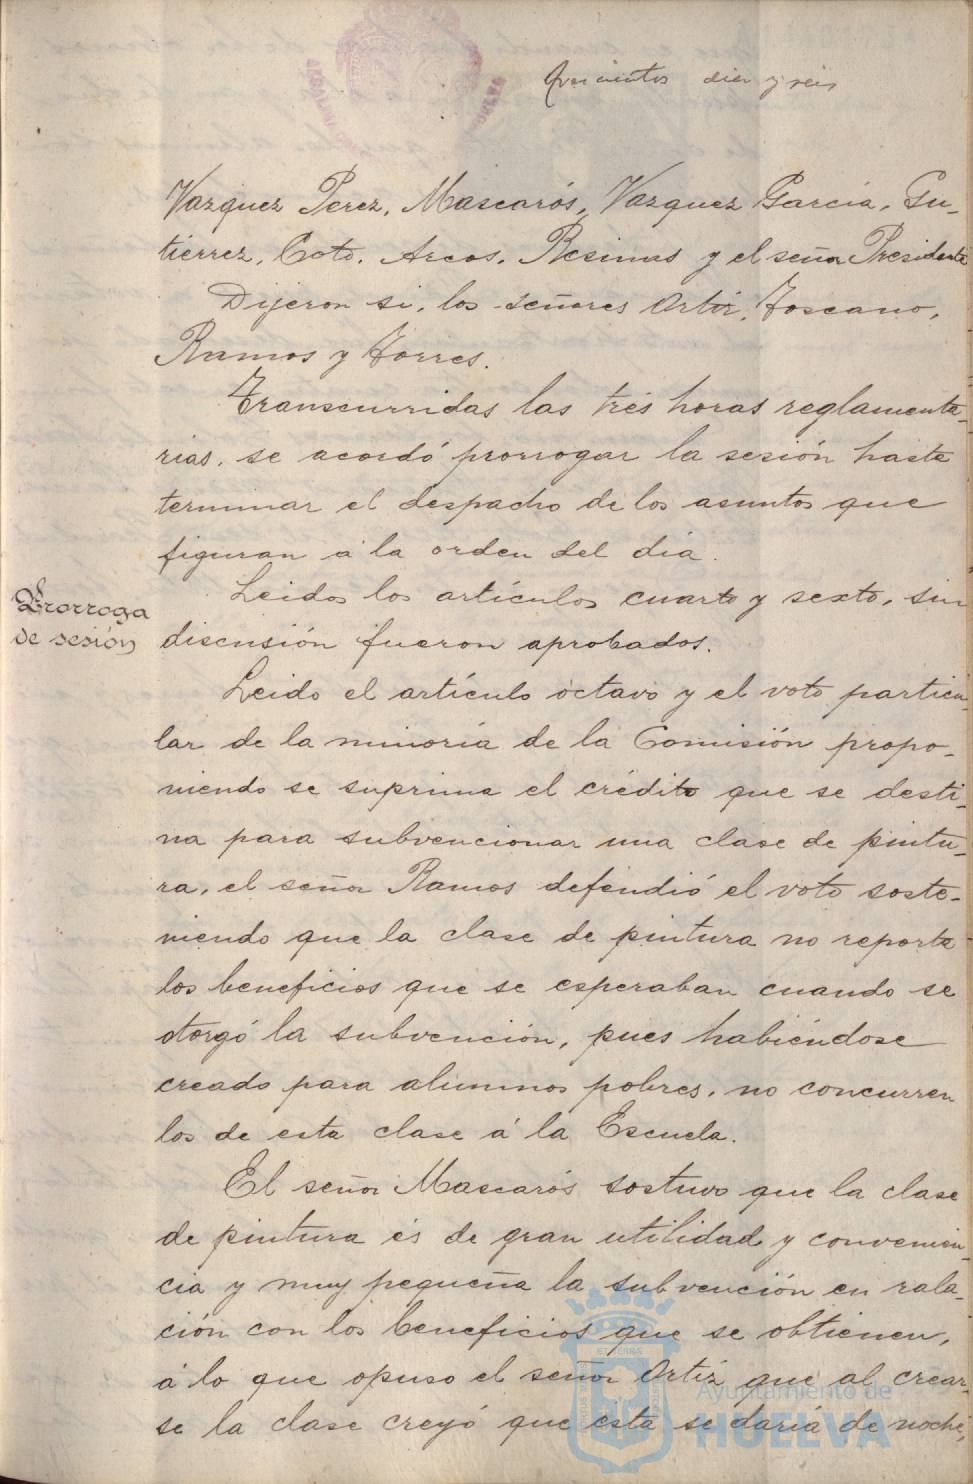 Quinientos diez y seis
Vazquez Perez, Mascarós, Vazquez Garcia, Gu-
tierrez, Coto, Arcos, Resinas y el señor Presidente
Dijeron si, los señores Ortiz, Toscano,
Ramos y Torres.
Transcurridas las trés horas reglamenta-
rias, se acordó prorrogar la sesión hasta
terminar el despacho de los asuntos que
figuran á la orden del dia.
Prorroga
de sesión
Leidos los artículos cuarto y sexto, sin
discusión fueron aprobados.
Leido el artículo octavo y el voto particu-
lar de la minoría de la Comisión propo-
niendo se suprima el crédito que se desti-
na para subvencionar una clase de pintu-
ra, el señor Ramos defendió el voto soste-
niendo que la clase de pintura no reporta
los beneficios que se esperaban cuando se
otorgó la subvención, pues habiéndose
creado para alumnos pobres, no concurren
los de esta clase á la Escuela.
El señor Mascarós sostuvo que la clase
de pintura és de gran utilidad y convenien-
cia y muy pequeña la subvención en rala-
ción con los beneficios que se obtienen,
á lo que opuso el señor Ortiz que al crear-
se la clase creyó que esta se daría de noche,
Ayuntamiento de
HUELVA